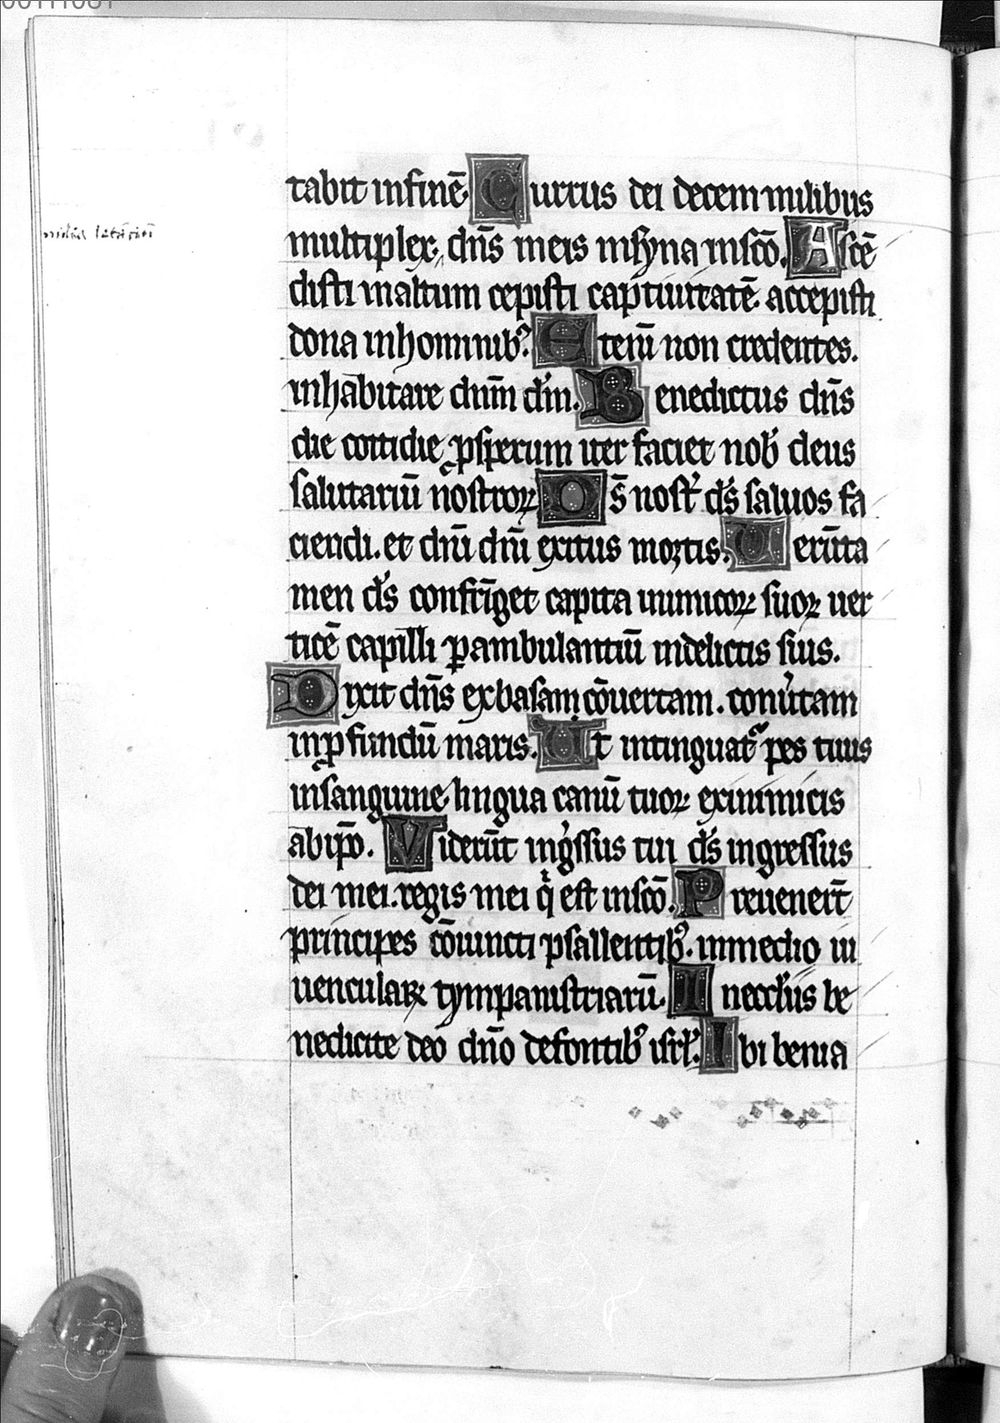 tabit infinē. Currus dei decem milibus
multiplex, dn̄s meis insyna insc̄o. Ascē
disti inaltum cepisti captiuitatē. accepisti
dona inhominib᷒. Eteni̅ non credentes.
inhabitare dnm̄ dm̄. Benedictus dn̄s
die cottidie ꝓsperum iter faciet nob̄ deus
salutariū nostroꝝ. Ds̄ nost̄ ds̄ saluos fa
ciendi. et dn̄i dn̄i exitus mortis. Uerūta
men ds̄ confrīget capita inimicoꝝ suoꝝ uer
ticē capilli ꝑambulantiū indelictis suis.
Dixit dn̄s exbasam cōuertam. conu̾tam
inꝓfundū maris. Ut intinguat᷒ pes tuus
insanguine lingua canū tuoꝝ exinimicis
abip̄o. Viderūt ing̾ssus tui ds̄ ingressus
dei mei. regis mei qͥ est insc̄o. Preuener̄t
principes cōiuncti psallentib᷒. inmedio iu
uencularꝝ tympanistriarū. In eccl̄iis be
nedicite deo dn̄o defontib᷒ isrl̄. Ibi benia